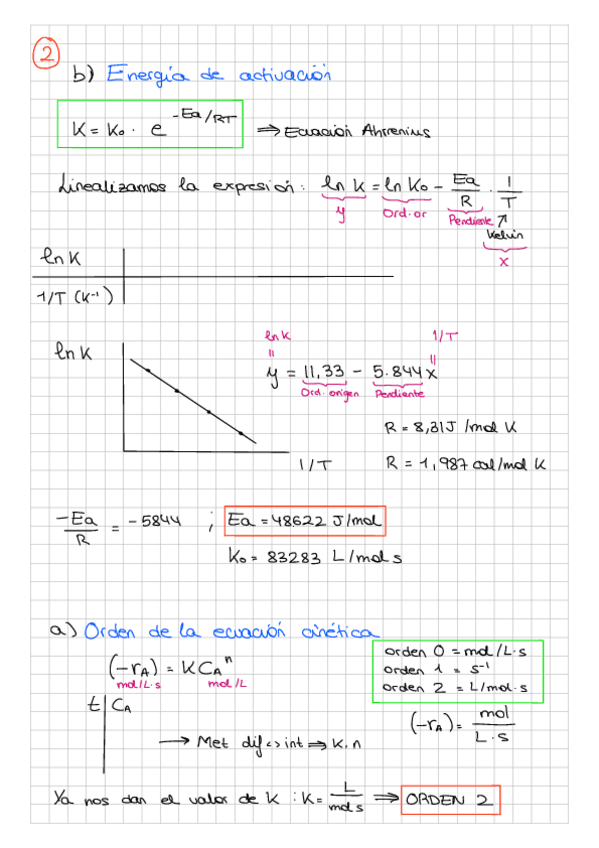 2
b) Energía de activación
K = K₀ · e^(-Ea/RT) ⇒ Ecuación Ahrrenius
Linealizamos la expresión: ln K = ln K₀ - Ea/R · 1/T
y Ord.or Pendiente ↗ Kelvin
x
ln K
1/T (K⁻¹)
ln K 1/T
ln K y = 11,33 - 5.844x
Ord. origen Pendiente
R = 8,31J /mol K
1/T R = 1,987 cal/mol K
-Ea/R = -5844 ; Ea = 48622 J/mol
K₀ = 83283 L/mol s
a) Orden de la ecuación cinética
(-rA) = K CAⁿ
mol/L·s mol/L
orden 0 = mol/L·s
orden 1 = s⁻¹
orden 2 = L/mol·s
t | CA
(-rA) = mol/L·s
→ Met dif <> int ⇒ K, n
Ya nos dan el valor de K : K = L/mol s ⇒ ORDEN 2